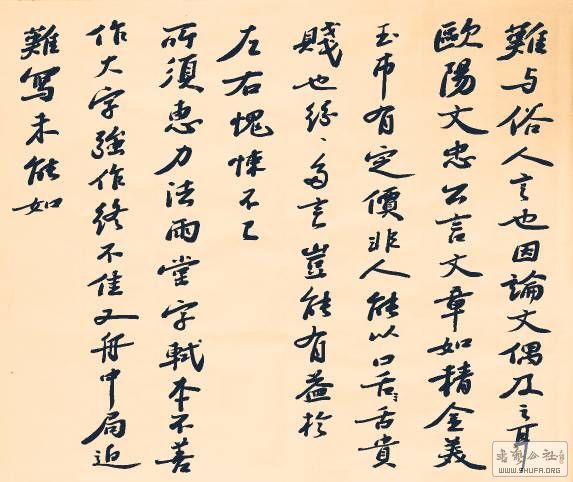 難与俗人言也因論文偶及之耳
歐陽文忠公言文章如精金美
玉市有定價非人能以口舌舌貴
賤也紛、多言豈能有益於
左右愧悚不已
所須惠力法雨堂字軾本不善
作大字強作終不佳又舟中局迫
難寫未能如
WWW.SHUFA.ORG